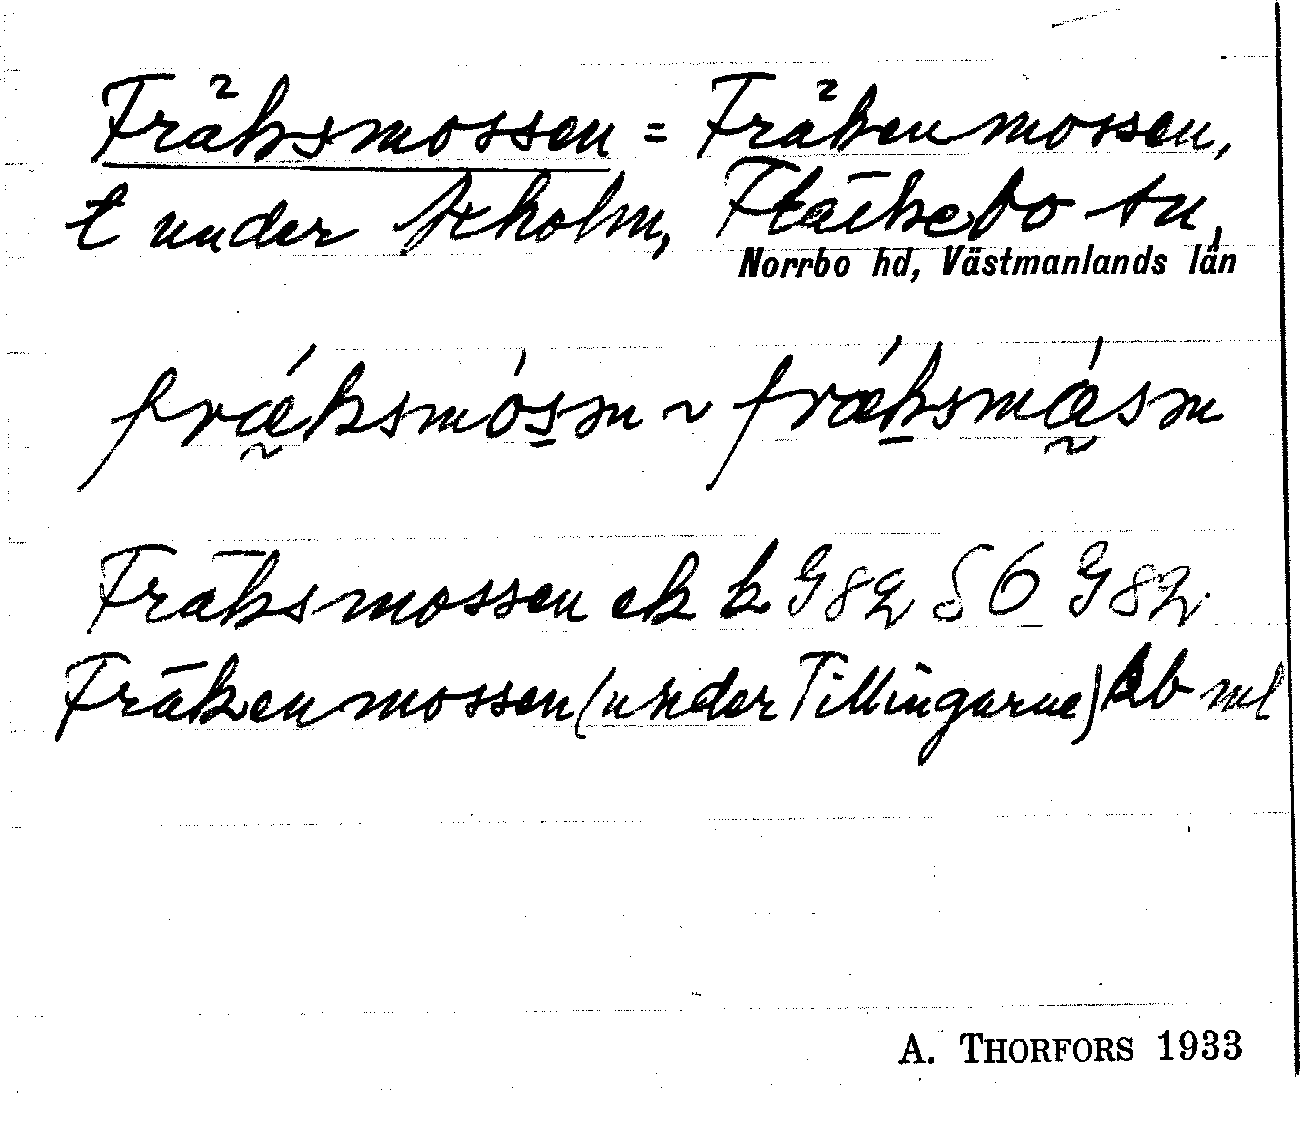 Fräksmossen = Fräkenmossen,
t under Axholm, Fläckebo sn,
Norrbo hd, Västmanlands län
frǽksmósm ~ fræksmásm
Fräksmossen ek k G82 56 G82.
Fräkenmossen (under Tillingarne) kb ml
A. THORFORS 1933